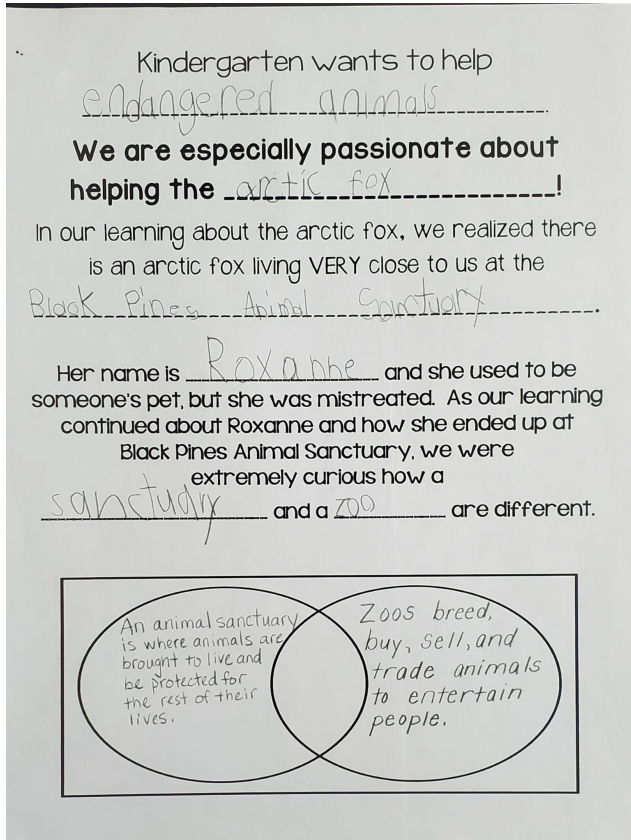 Kindergarten wants to help
endangered animals.
We are especially passionate about
helping the arctic fox!
In our learning about the arctic fox, we realized there
is an arctic fox living VERY close to us at the
Black Pines Animal Sanctuary.
Her name is Roxanne and she used to be
someone's pet, but she was mistreated. As our learning
continued about Roxanne and how she ended up at
Black Pines Animal Sanctuary, we were
extremely curious how a
sanctuary and a zoo are different.
An animal sanctuary
is where animals are
brought to live and
be protected for
the rest of their
lives.
Zoos breed,
buy, sell, and
trade animals
to entertain
people.